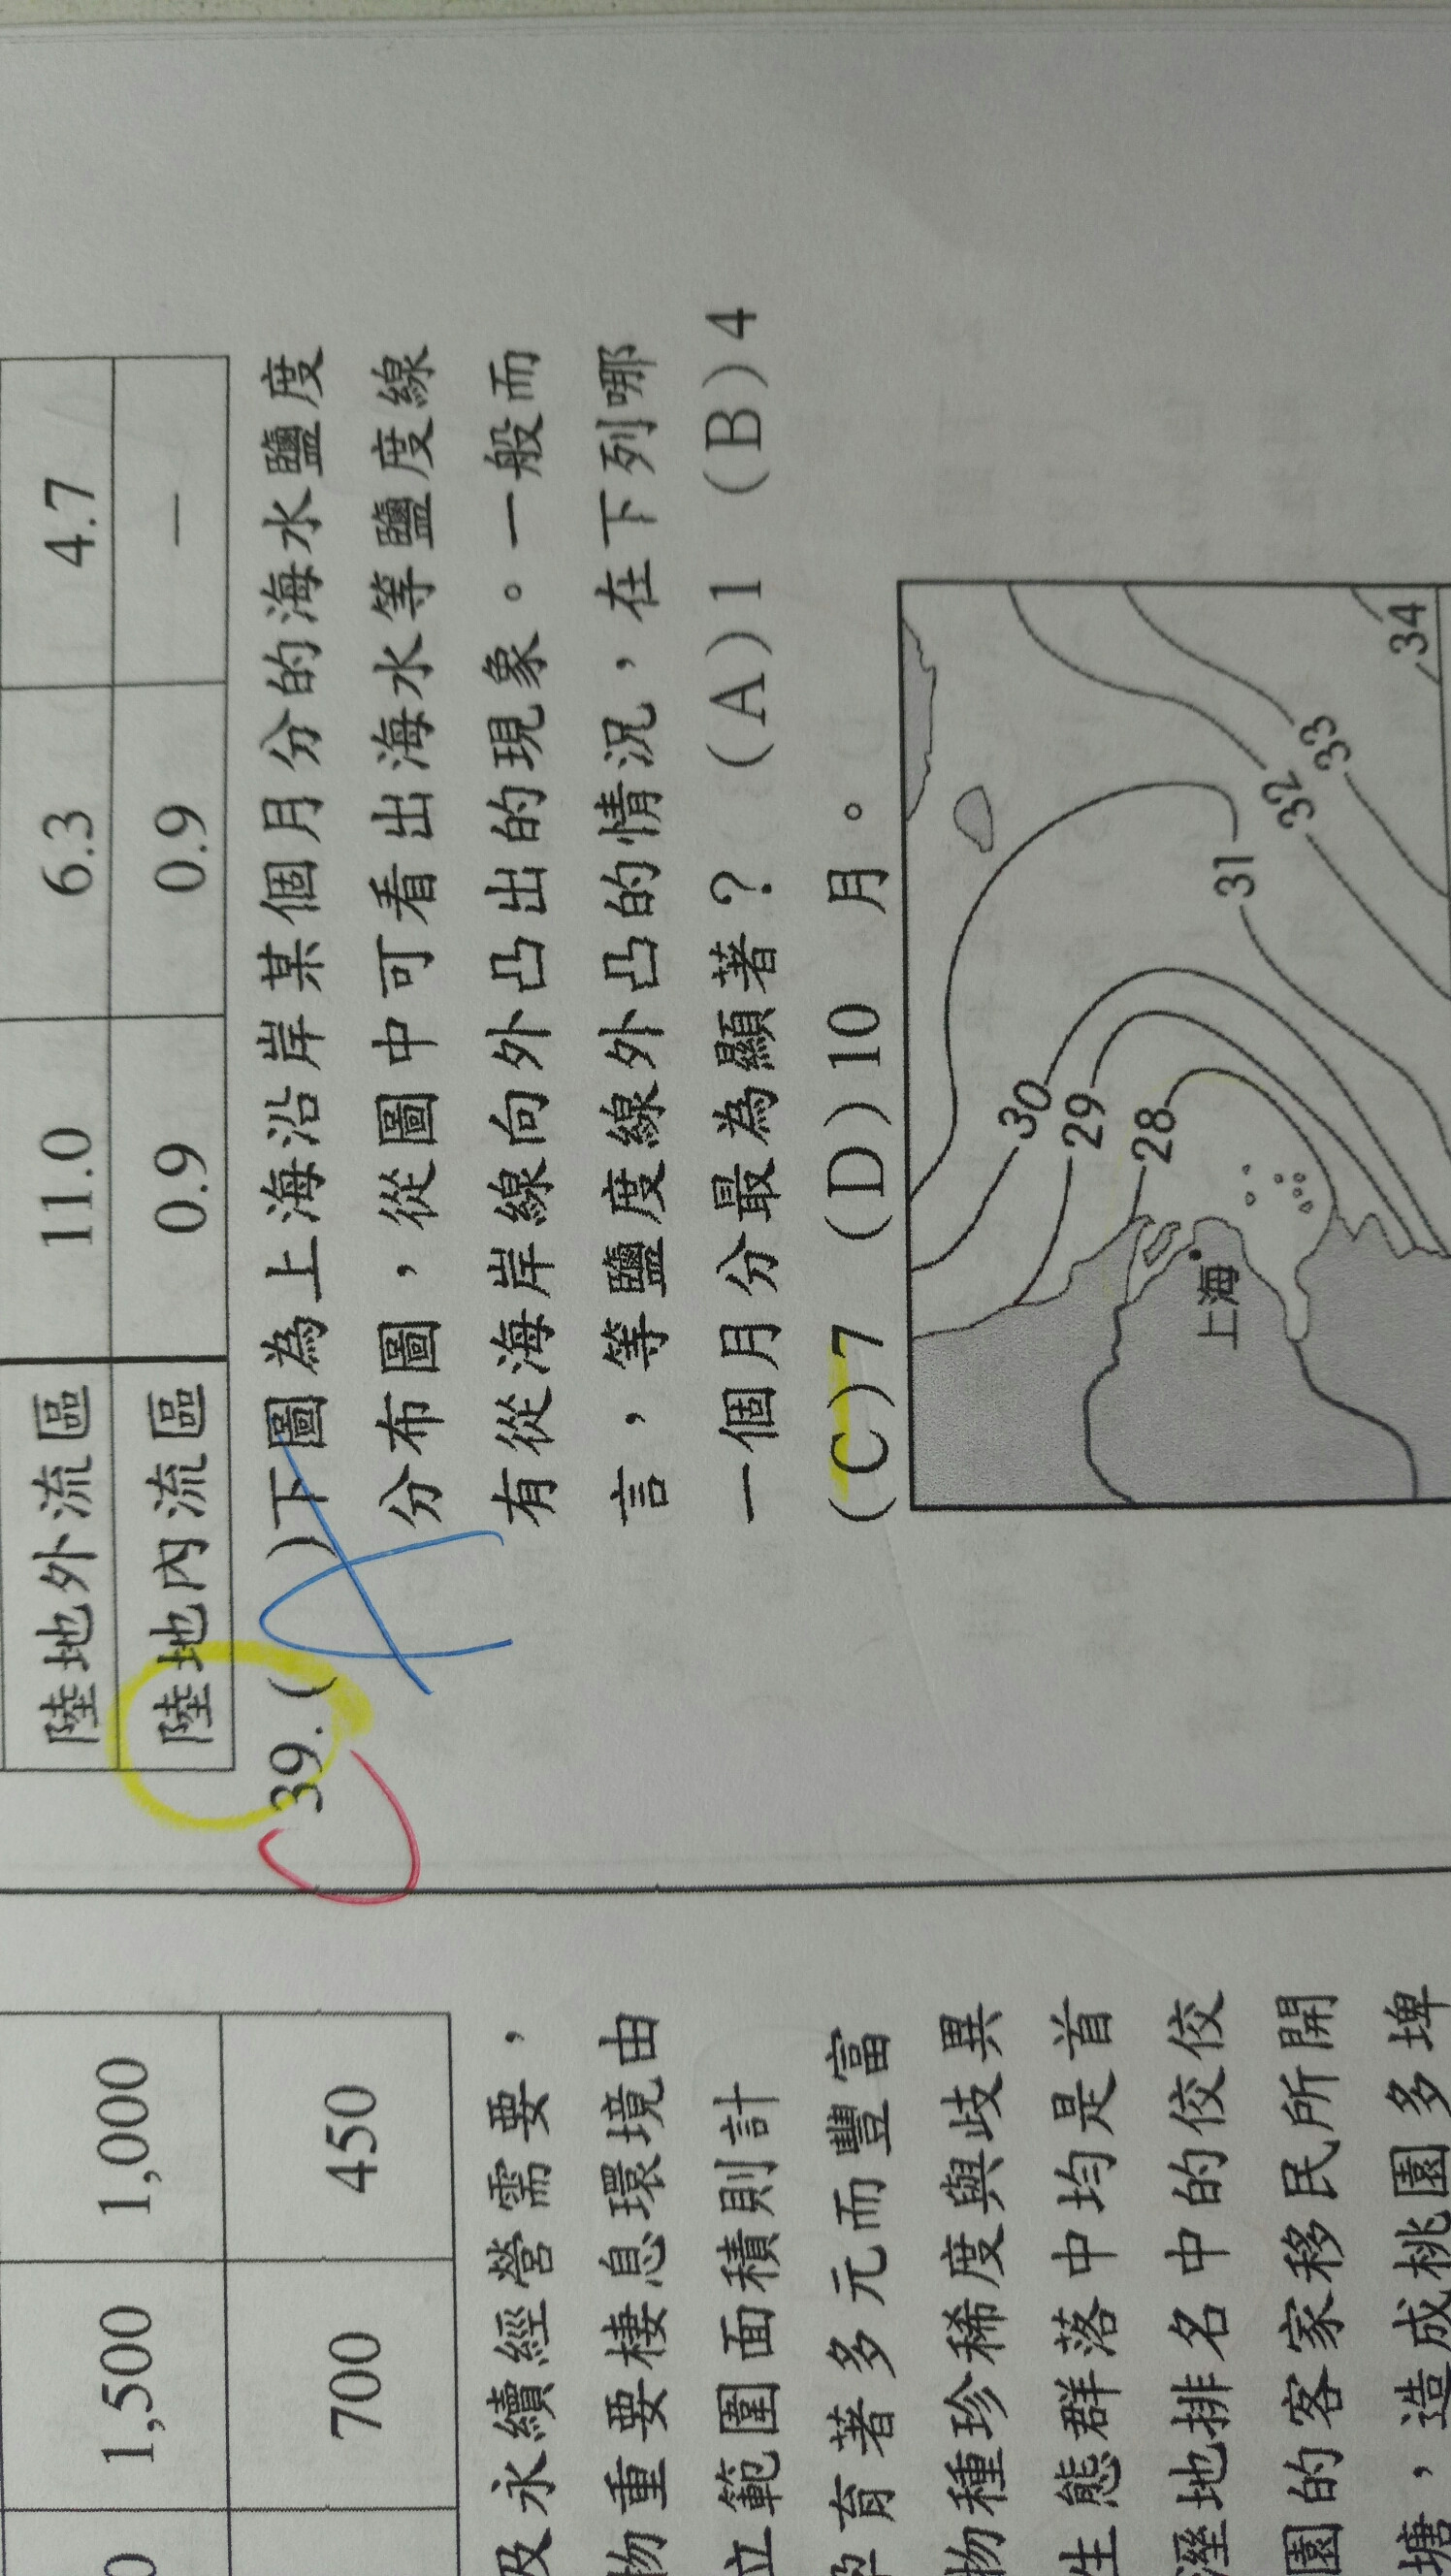 陸地外流區 11.0 6.3 4.7
陸地內流區 0.9 0.9 —
C 39.( A )下圖為上海沿岸某個月分的海水鹽度
分布圖，從圖中可看出海水等鹽度線
有從海岸線向外凸出的現象。一般而
言，等鹽度線外凸的情況，在下列哪
一個月分最為顯著？ (A)1 (B)4
(C)7 (D)10 月。
30
29
28
31
32
33
34
上海
1,500 1,000
700 450
及永續經營需要，
物重要棲息環境由
立範圍面積則計
孕育著多元而豐富
物種珍稀度與歧異
生態群落中均是首
溼地排名中的佼佼
園的客家移民所開
塘，造成桃園多埤